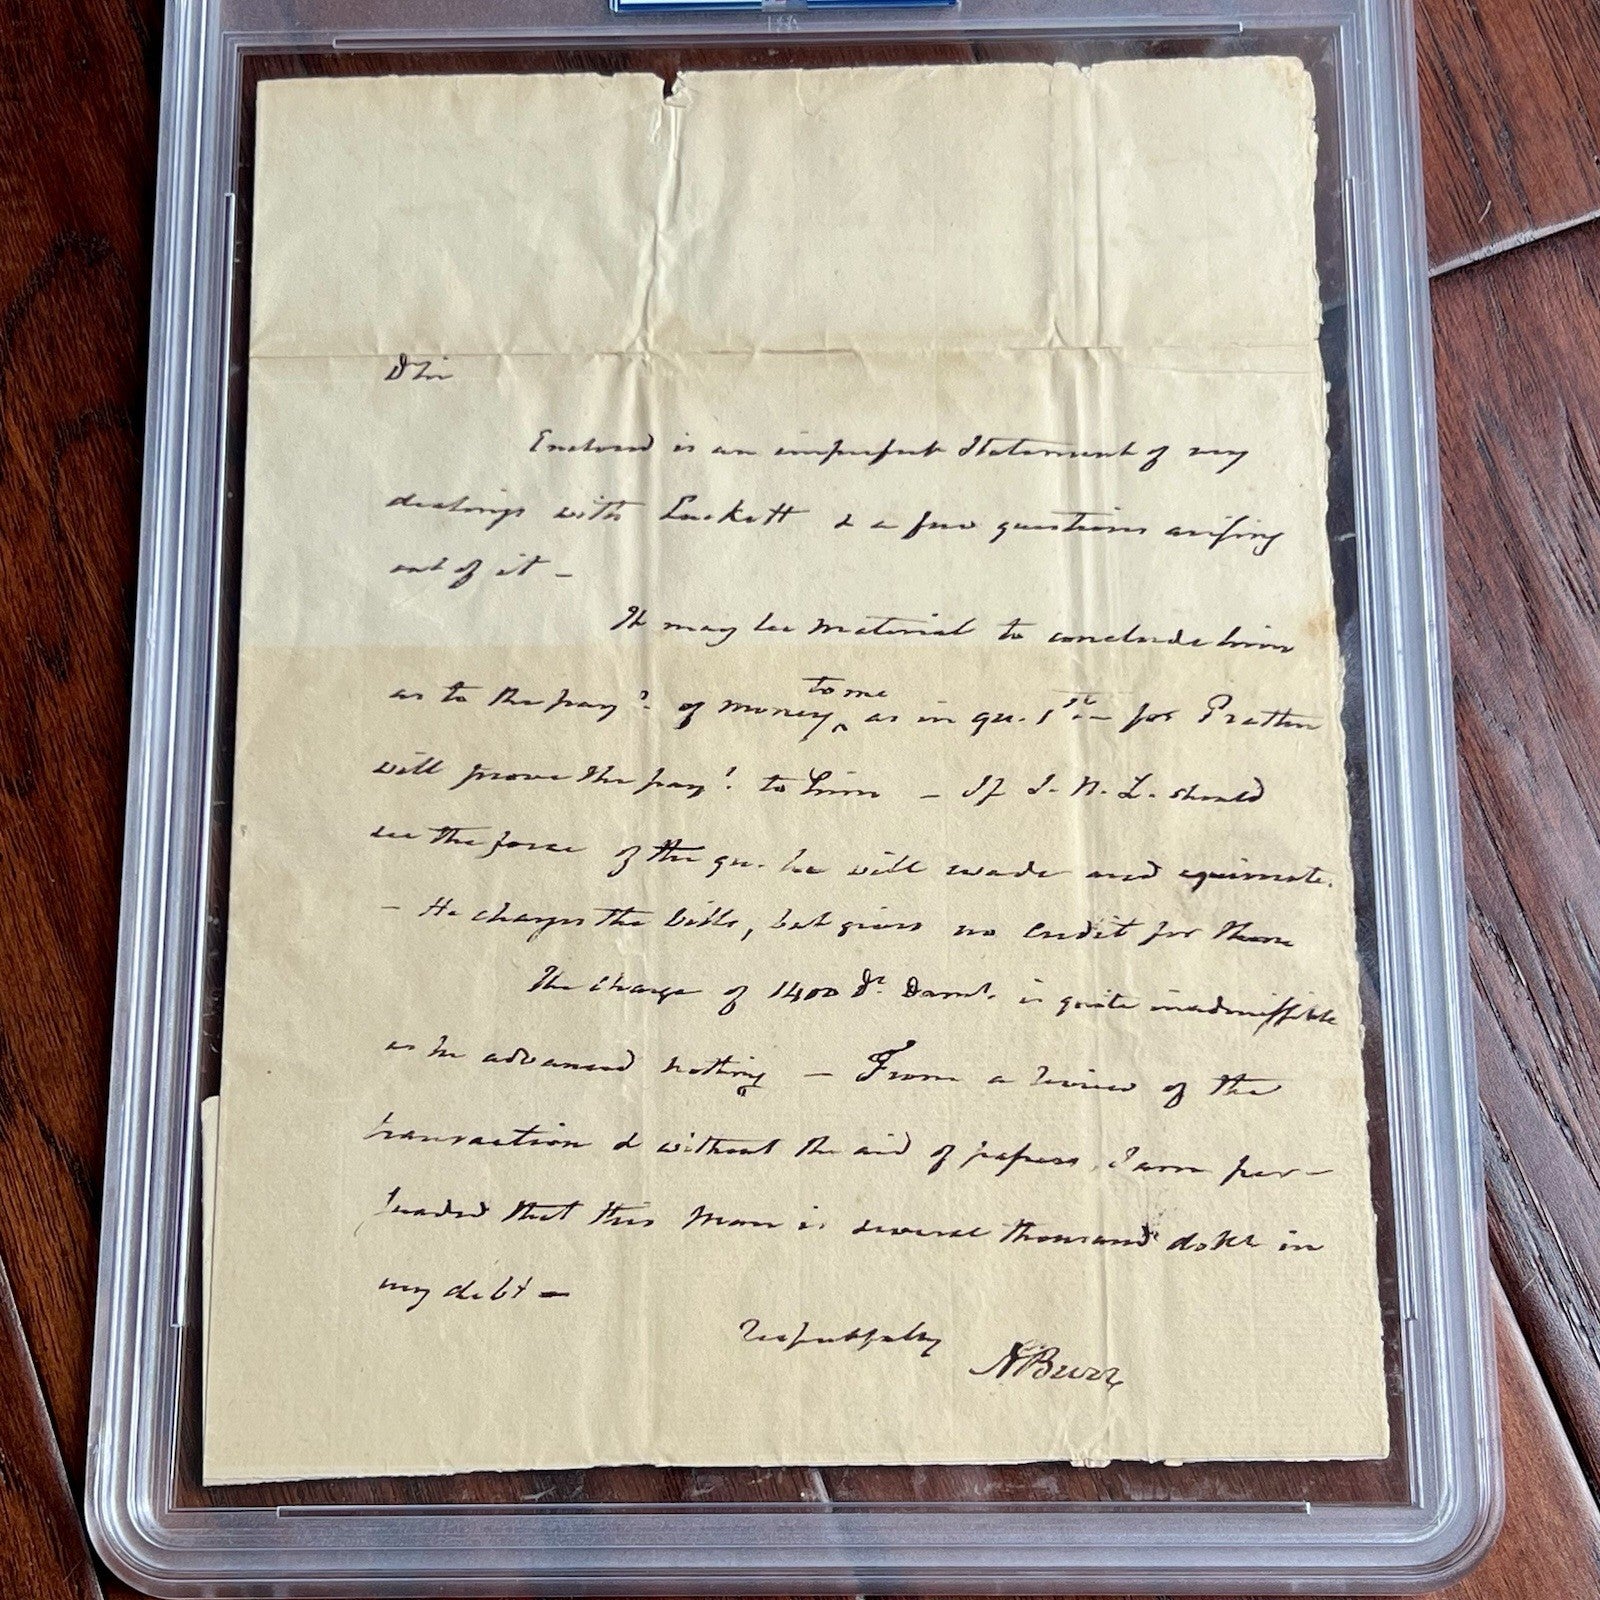 D Sir
Enclosed is an imperfect Statement of my
dealings with Luckett & a few questions arising
out of it –
It may be material to conclude him
to me
as to the pay.t of money ^ as in qu. 1st – for Pratten
will prove the pay.t to him – If J. N. L. should
see the force of the qu. he will evade and equivocate.
– He charges the bills, but gives no credit for them
The charge of 1400 Ds. Dam.s is quite inadmissible
as he advanced nothing – From a review of the
transaction & without the aid of papers, I am per–
suaded that this Man is several thousand dolls in
my debt –
respectfully
A Burr